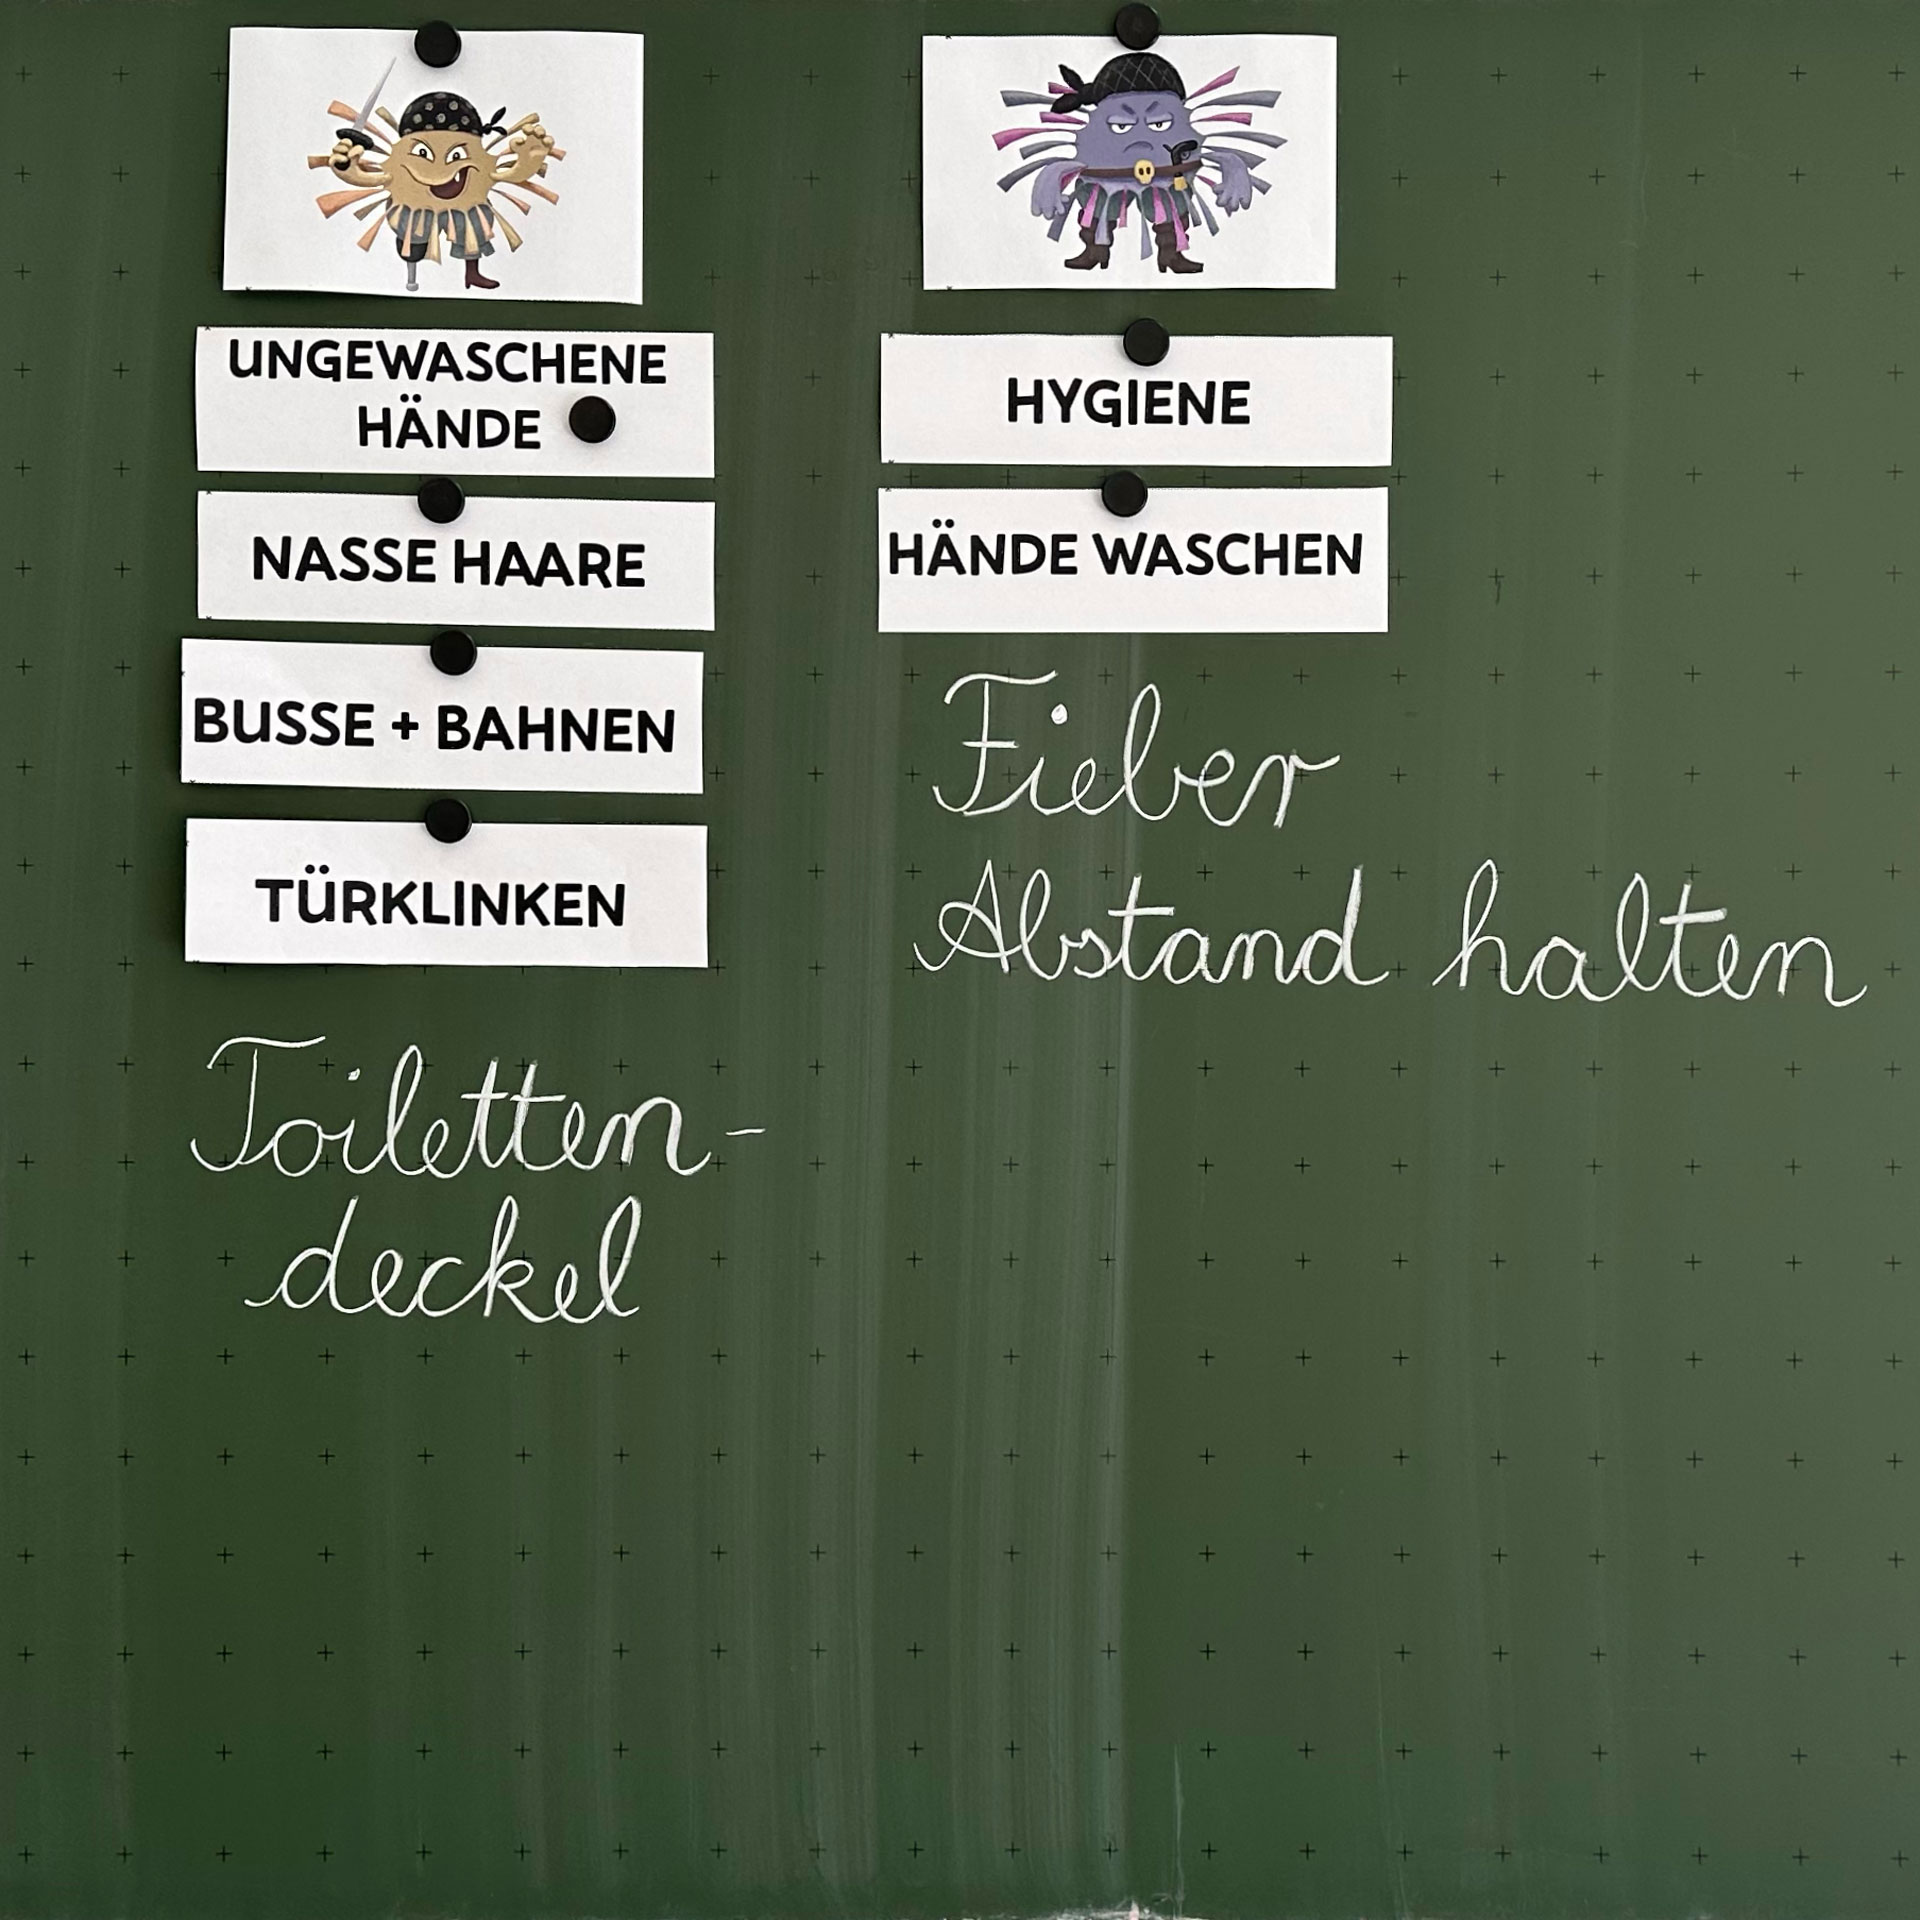 UNGEWASCHENE
HÄNDE
NASSE HAARE
BUSSE + BAHNEN
TÜRKLINKEN
Toiletten-
deckel
HYGIENE
HÄNDE WASCHEN
Fieber
Abstand halten